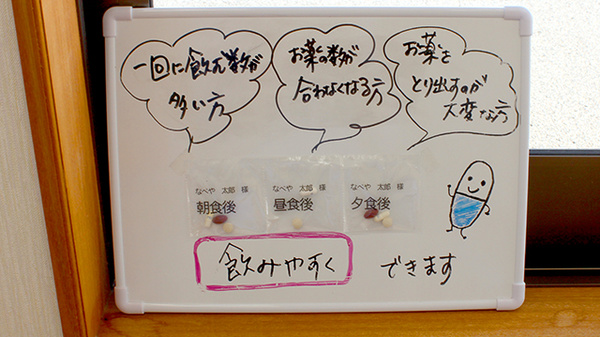 一回に飲む数が
多い方
お薬の数が
合わなくなる方
お薬を
とり出すのが
大変な方
なべや 太郎 様
朝食後
なべや 太郎 様
昼食後
なべや 太郎 様
夕食後
飲みやすく できます